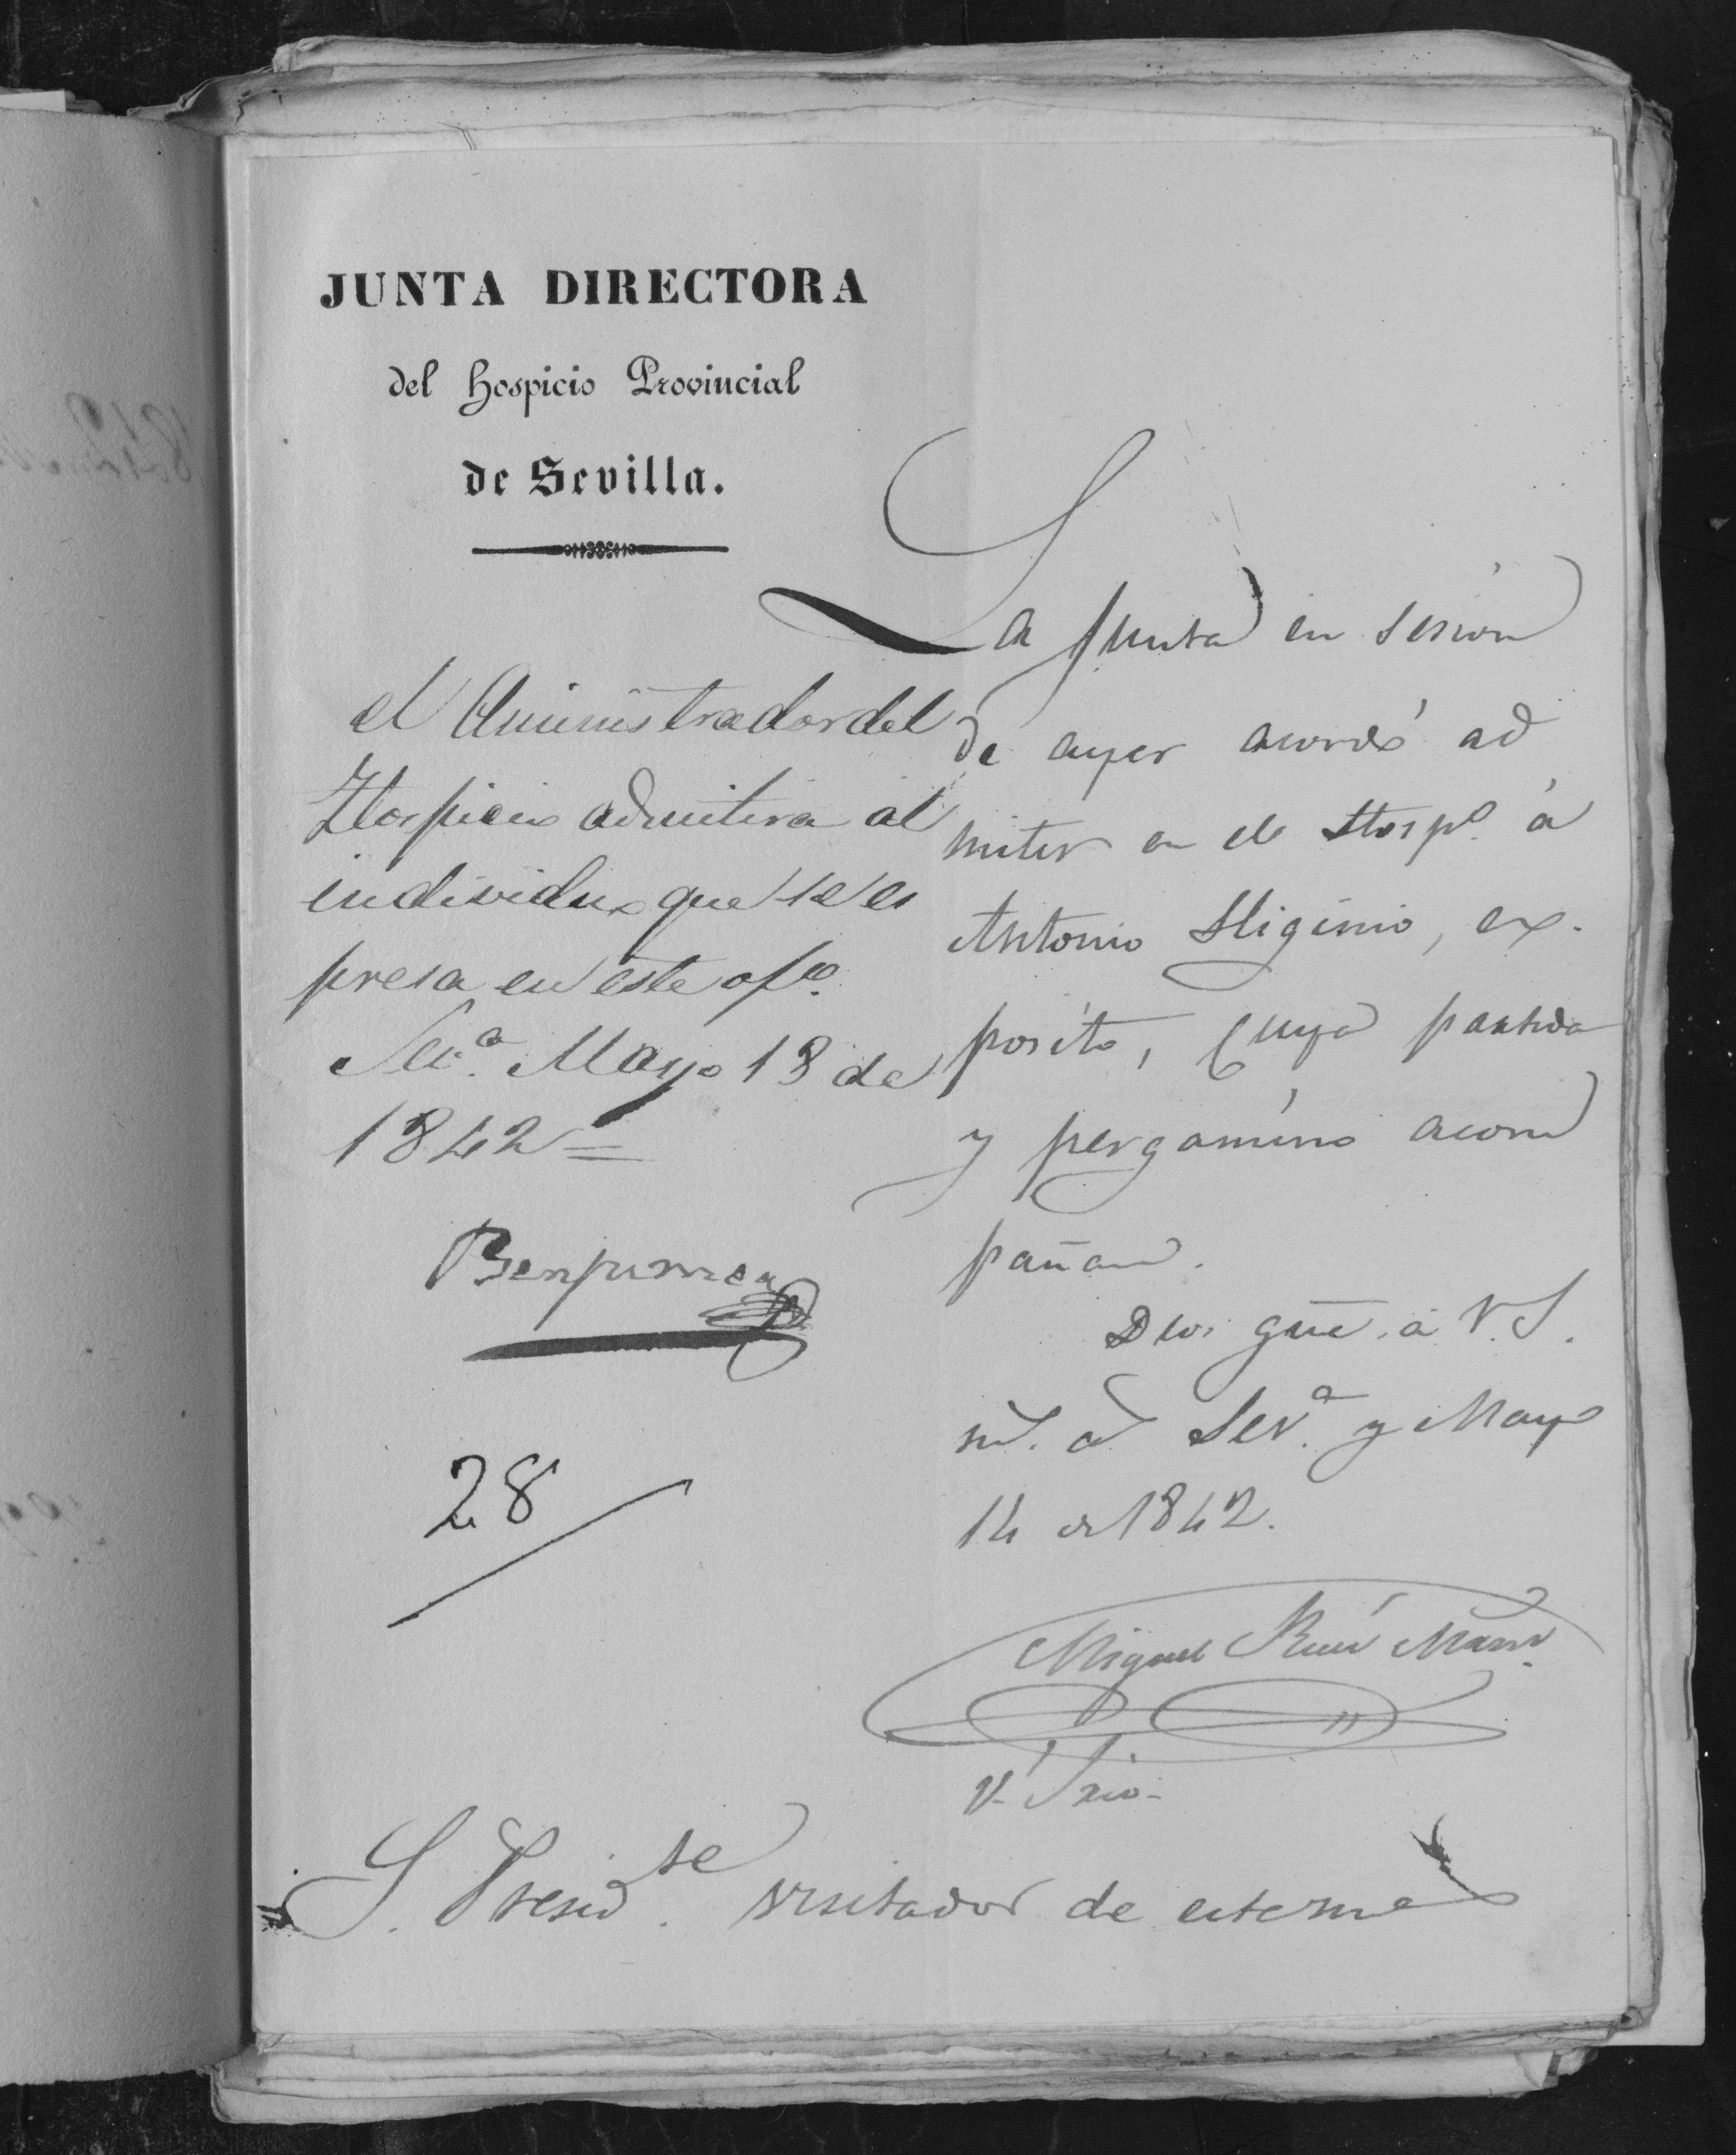 JUNTA DIRECTORA
del Hospicio Provincial
de Sevilla.
La Junta en sesion
de ayer acordó ad
mitir en el Hospº. á
Antonio Higinio, ex-
posito, cuya partida
y pergamino acom
pañan.
Dios gue. á V.S.
ms. as. Sevª. y Mayo
14 de 1842.
Miguel
V. Srio.
el Aministrador del
Hospicio admitira al
individuo que se es
presa en este ofº.
Sevª. Mayo 18 de
1842=
Benjumea
28
S. Presidte. visitador de este me